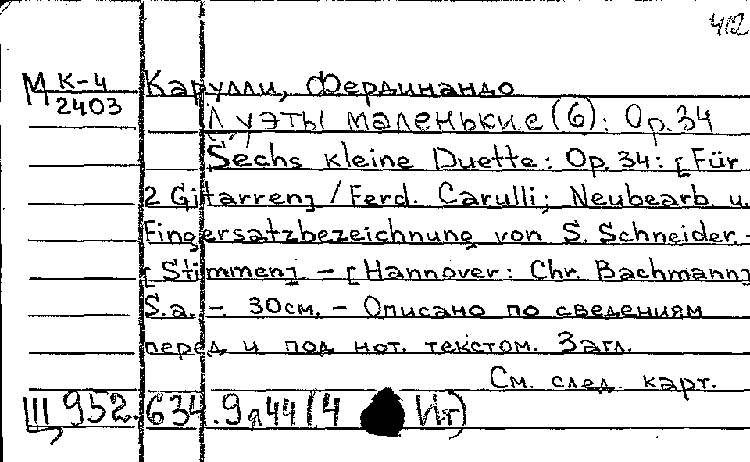 412
М К-4 Карулли, Фердинандо
2403 Дуэты маленькие (6): Op. 34
Sechs kleine Duette: Op. 34: [Für
2 Gitarren] / Ferd. Carulli; Neubearb u.
Fingersatzbezeichnung von S. Schneider. -
[Stimmen]. - [Hannover: Chr. Bachmann]
S.a. - 30см. - Описано по сведениям
перед и под нот. текстом. Загл.
См. след. карт.
III 952.634.9я44(4 Ит)